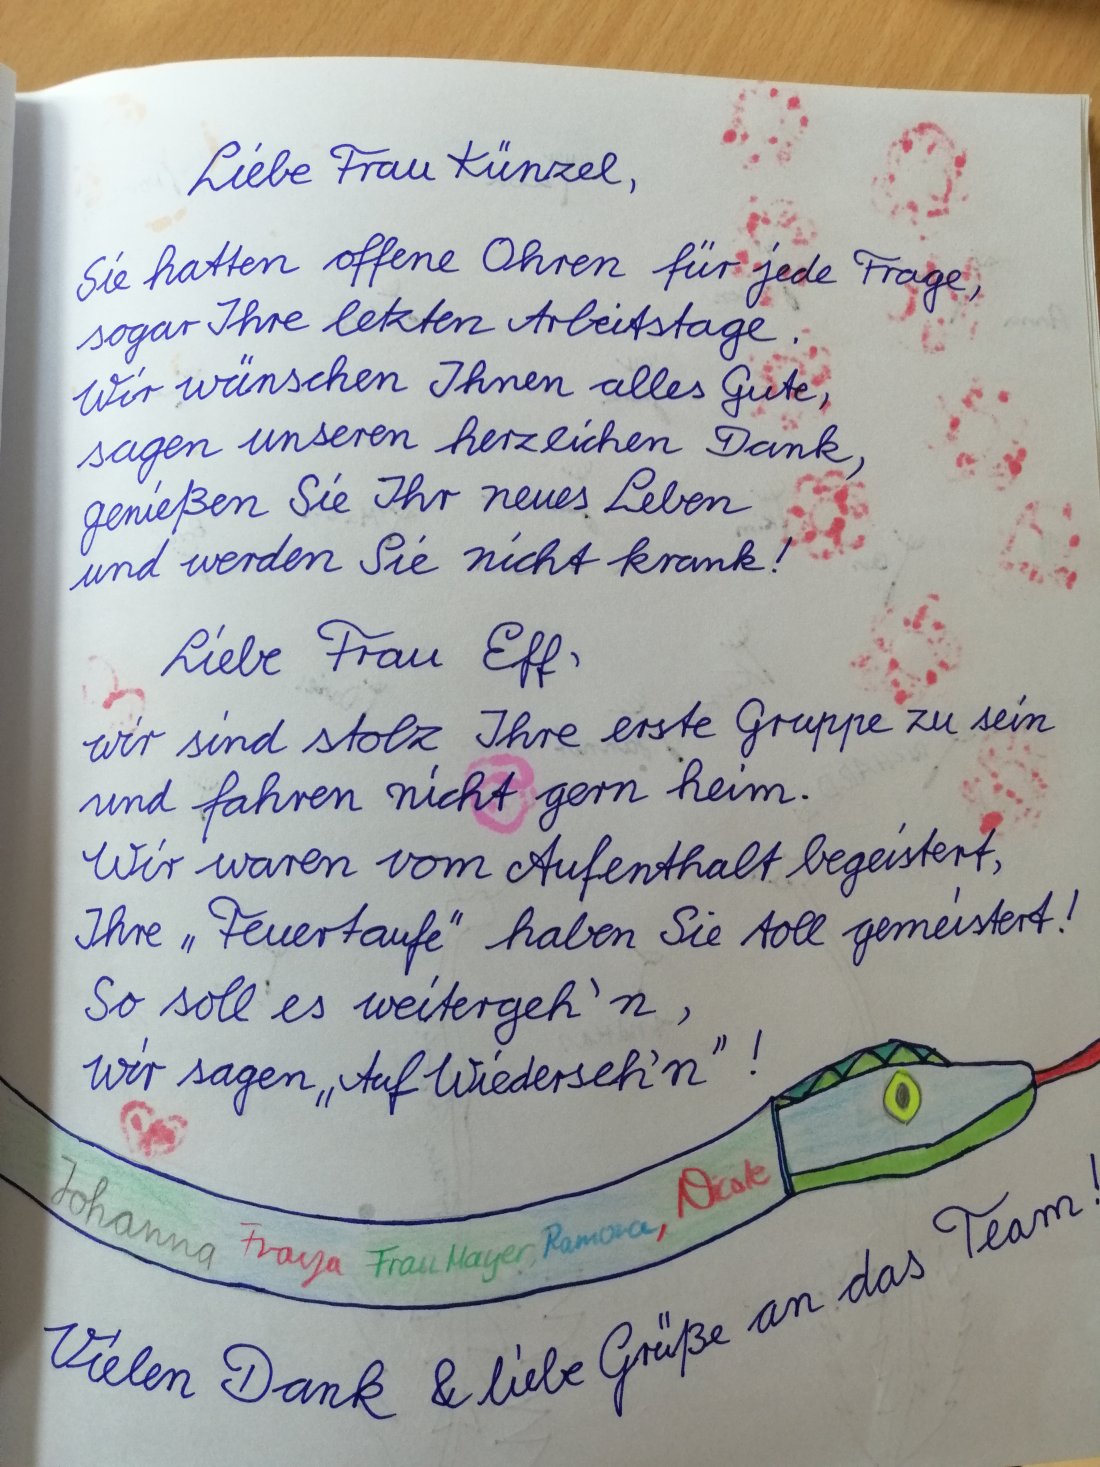 Liebe Frau Künzel,
Sie hatten offene Ohren für jede Frage,
sogar Ihre letzten Arbeitstage.
Wir wünschen Ihnen alles Gute,
sagen unseren herzlichen Dank,
genießen Sie Ihr neues Leben
und werden Sie nicht krank!
Liebe Frau Eff,
wir sind stolz Ihre erste Gruppe zu sein
und fahren nicht gern heim.
Wir waren vom Aufenthalt begeistert,
Ihre „Feuertaufe“ haben Sie toll gemeistert!
So soll es weitergeh'n,
wir sagen „Auf Wiederseh'n“!
Johanna Fraya Frau Mayer, Ramona, Nicole
Vielen Dank & liebe Grüße an das Team!